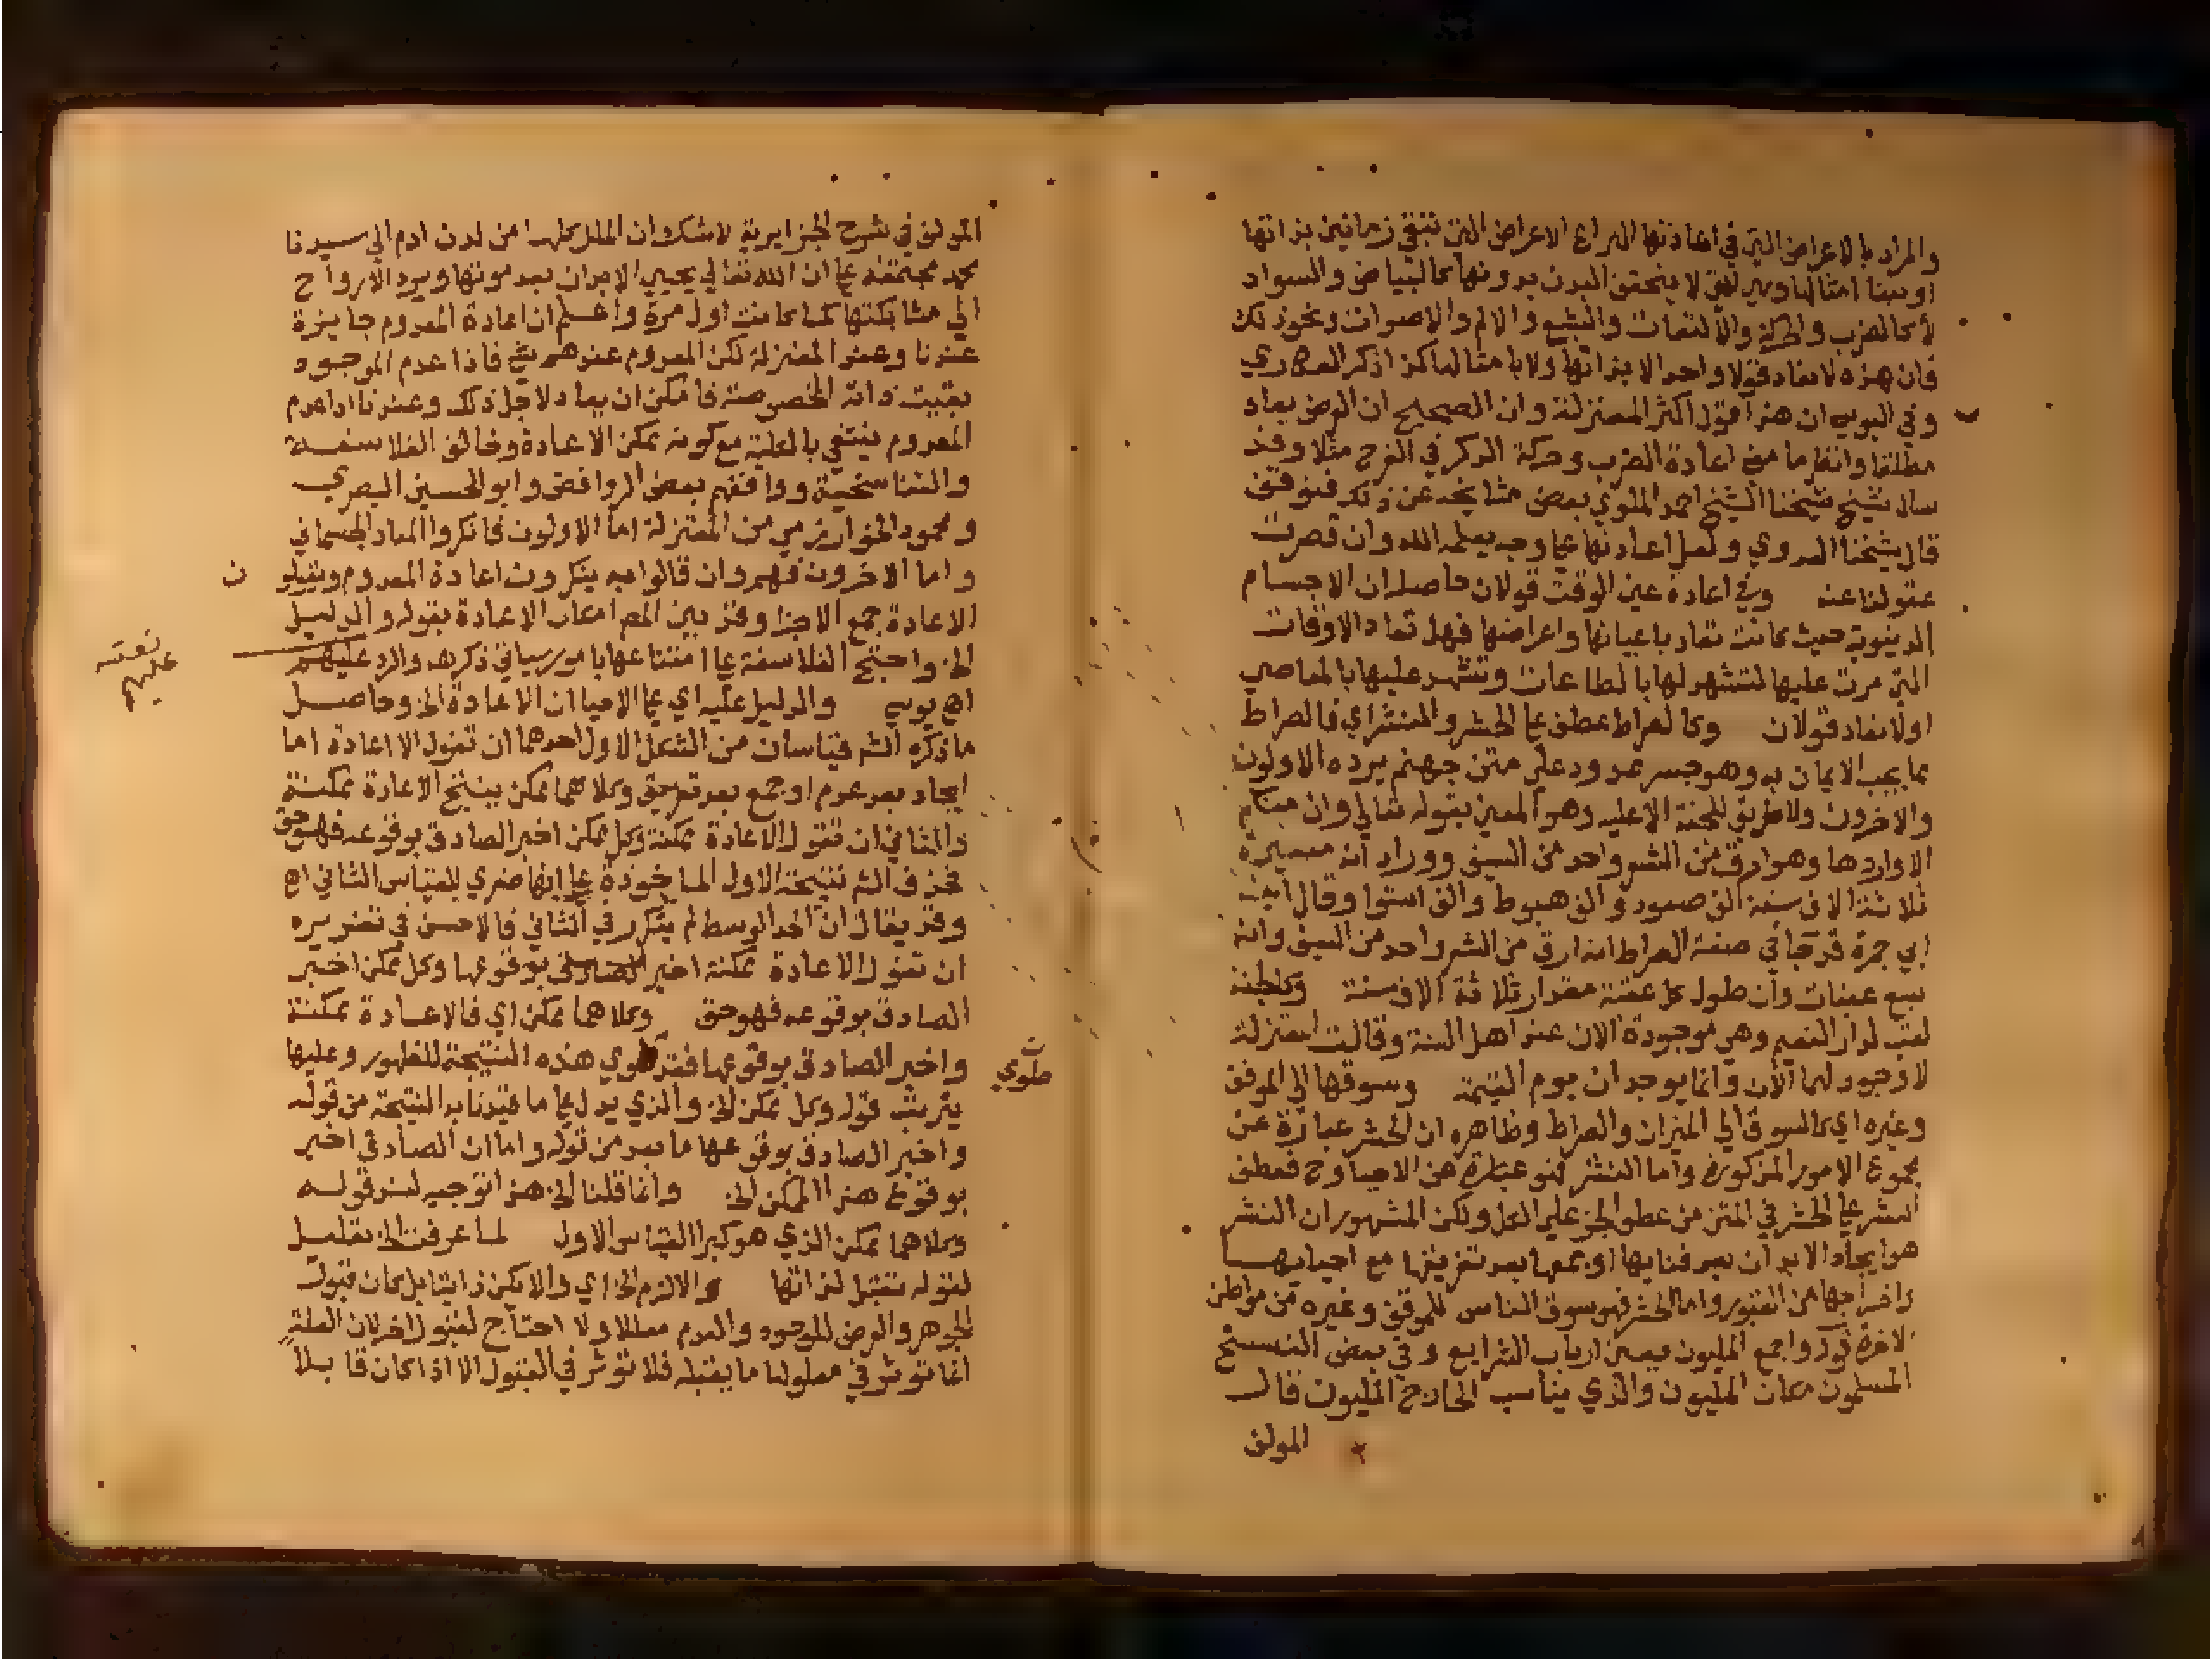 والمراد بالاعراض التي في اعادتها النزاع الاعراض التي تبقي زمانين بذاتها
او بتا امثالها وهي التي لا يتحقق البدن بدونها كالبياض والسواد
لا كالضرب والحركة والالتفات والشبع والالم والاصوات ونحو ذلك
فان هذه لا تعاد قولا واحدا لا بذاتها ولا بامثالها كذا ذكر السكاري
وفي اليوسي ان هذا قول اكثر المعتزلة وان الصحيح ان العرض يعاد
مطلقا وانظر ما معني اعادة الضرب وحركة الذكر في الفرج مثلا وقد
سال شيخ شيخنا الشيخ احمد الملوي بعض مشايخه عن ذلك فتوقف
قال شيخنا العدوي ولعل اعادتها علي وجه يعلمه الله وان قصرت
عقولنا عنه وفي اعادة عين الوقت قولان حاصله ان الاجسام
الدنيوية حيث كانت تعاد باعيانها واعراضها فهل تعاد الاوقات
التي مرت عليها لتشهد لها بالطاعات وتشهد عليها بالمعاصي
اولا تعاد قولان وكالصراط عطف علي الحشر والنشر اي فالصراط
مما يجب الايمان به وهو جسر ممدود علي متن جهنم يرده الاولون
والاخرون ولا طريق للجنة الا عليه وهو المعني بقوله تعالي وان منكم
الا واردها وهو ارق من الشعر واحد من السيف وورد انه مسيرة
ثلاثة الاف سنة الف صعود والف هبوط والف استوا وقال ابن
ابي جمرة قد جا في صفة الصراط انه ارق من الشعر واحد من السيف وانه
سبع عقبات وان طول كل عقبة مقدار ثلاثة الاف سنة وكالجنة
لقب لدار النعيم وهي موجودة الان عند اهل السنة وقالت المعتزلة
لا وجود لهما الان وانما يوجدان يوم القيمة وسوقها الي الموقف
وغيره اي كالسوق الي الميزان والصراط وظاهره ان الحشر عبارة عن
مجموع الامور المذكورة واما النشر فهو عبارة عن الاحيا وح فعطف
النشر علي الحشر في المتن من عطف الجز علي الكل ولكن المشهور ان النشر
هو ايجاد الابدان بعد فنايها او جمعها بعد تفريقها مع احيايها
واخراجها من القبور واما الحشر فهو سوق الناس للموقف وغيره من مواطن
الاخرة قوله واجمع المليون يعني ارباب الشرايع وفي بعض النسخ
المسلمون مكان المليون والذي يناسب الخارج المليون قال
المولف
المولف في شرح الجزايرية لا شك ان الملل كلها من لدن ادم الي سيدنا
محمد مجتمعة علي ان الله تعالي يحيي الابدان بعد موتها ويرد الارواح
الي مشابكتها كما كانت اول مرة واعلم ان اعادة المعدوم جايزة
عندنا وعند المعتزلة لكن المعدوم عندهم شي فاذا عدم الموجود
بقيت ذاته المخصوصة فامكن ان يعاد لاجل ذلك وعندنا اذا عدم
المعدوم ينتفي بالكلية مع كونه ممكن الاعادة وخالف الفلاسفة
والتناسخية ووافقهم بعض الروافض وابو الحسين البصري
ومحمود الخوارزمي من المعتزلة اما الاولون فانكروا المعاد الجسماني
واما الاخرون فهم وان قالوا به ينكرون اعادة المعدوم ويقيلون
الاعادة جمع الاجزا وقد بين المص امكان الاعادة بقوله والدليل
الخ واحتج الفلاسفة علي امتناعها بامور سياتي ذكرها والرد عليهم
اهـ يوسي والدليل عليه اي علي الاحيا ان الاعادة الخ وحاصل
ما ذكره الش قياسان من الشكل الاول احدهما ان تقول الاعادة اما
ايجاد بعد عدم او جمع بعد تفريق وكلاهما ممكن ينتج الاعادة ممكنة
والثاني ان تقول الاعادة ممكنة وكل ممكن اخبر الصادق بوقوعه فهو حق
فحذف الش نتيجة الاول الماخوذة علي انها صغري للقياس الثاني اهـ
وقد يقال ان الحد الوسط لم يتكرر في الثاني فالاحسن في تقريره
ان تقول الاعادة ممكنة اخبر الصادق بوقوعها وكل ممكن اخبر
الصادق بوقوعه فهو حق وكلاهما ممكن اي فالاعادة ممكنة
واخبر الصادق بوقوعها فقد طوي هذه النتيجة للظهور وعليها
يترتب قوله وكل ممكن الخ والذي يدل علي ما قيدنا به النتيجة من قوله
واخبر الصادق بوقوعها ما بعد من قوله واما ان الصادق اخبر
بوقوع هذا الممكن الخ وانما قلنا الخ هذا توجيه لسند قوله
وكلاهما ممكن الذي هو كبرا القياس الاول لما عرفت الخ تعليل
لقوله تقبل لذاتها والا لزم الخ اي والا يكن ذاتيا بل كان قبول
الجوهر والعرض للوجود والعدم معللا ولا احتاج لقبول اخر لان العلة
انما توثر في معلولها ما يقبله فلا توثر في القبول الا اذا كان قابلا
ن
طوي